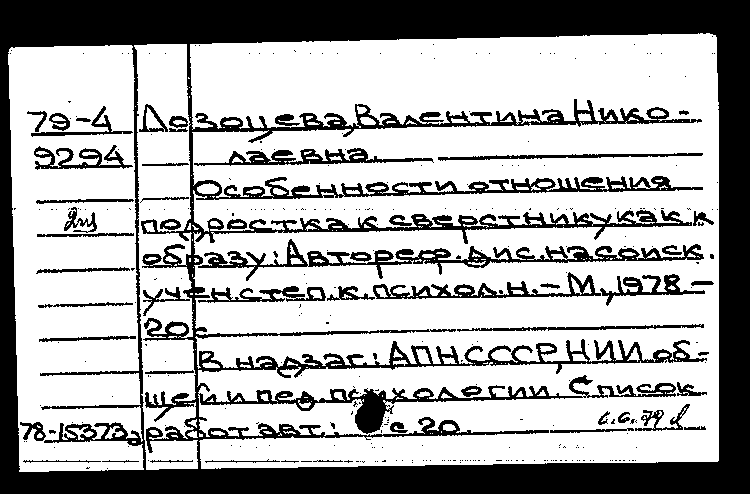 79-4 Лозоцева, Валентина Нико-
9294 лаевна.
Особенности отношения
подростка к сверстнику как к
образу: Автореф. дис. на соиск.
учен. степ. к. психол. н. – М., 1978. –
20 с.
В надзаг.: АПН СССР, НИИ об-
щей и пед. психологии. Список
78-15373а работ авт.: с. 20. 6.6.79